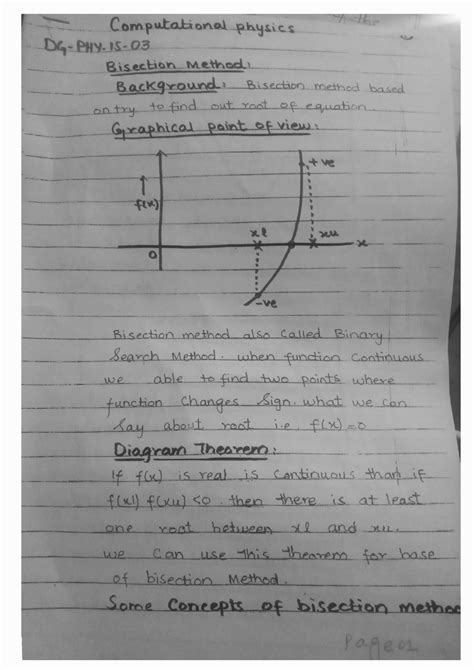 Computational physics
DG-PHY-15-03
Bisection Method:
Background: Bisection method based
on try to find out root of equation.
Graphical point of view:
+ve
f(x)
xl
xu
x
0
-ve
Bisection method also Called Binary
Search Method. when function Continuous
we able to find two points where
function Changes Sign. what we can
Say about root i.e, f(x)=0
Diagram Theorem:
If f(x) is real is Continuous than if
f(xl) f(xu) <0. then there is at least
one root between xl and xu.
we Can use this theorem for base
of bisection Method.
Some Concepts of bisection method
Page 01